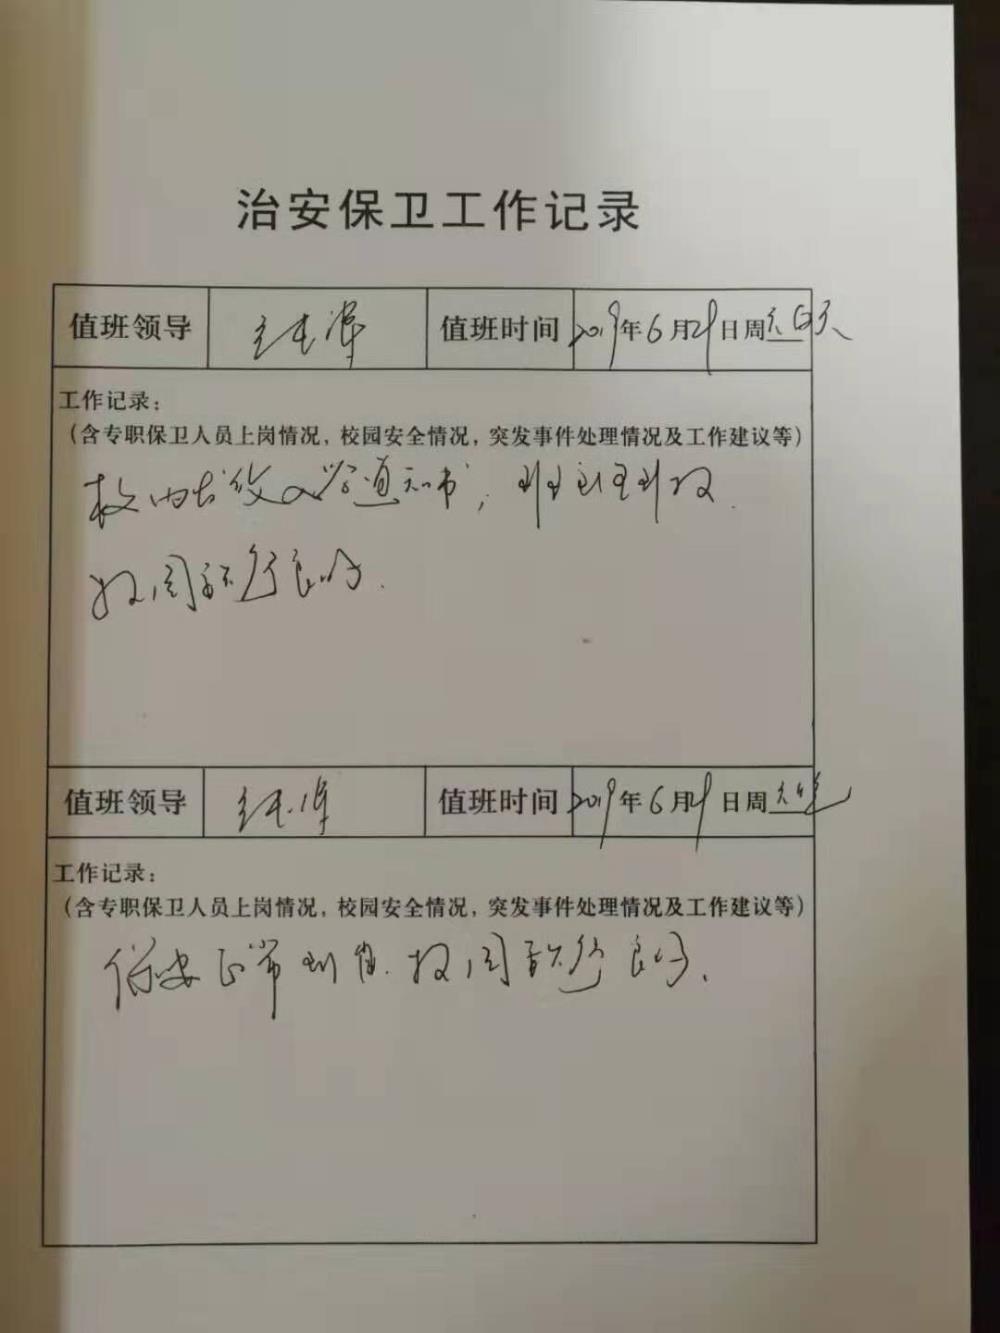 治安保卫工作记录
值班领导 值班时间 2019年6月29日周六白天
工作记录：
（含专职保卫人员上岗情况，校园安全情况，突发事件处理情况及工作建议等）
校内发放入学通知书，班主任到校
校园秩序良好.
值班领导 值班时间 2019年6月29日周六晚
工作记录：
（含专职保卫人员上岗情况，校园安全情况，突发事件处理情况及工作建议等）
保安正常到岗.校园秩序良好.